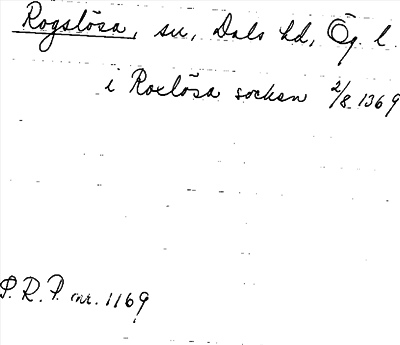 Rogslösa, sn, Dals hd, Ög. l.
i Roxlösa socken 2/8 1369
P.R.P. nr. 1169